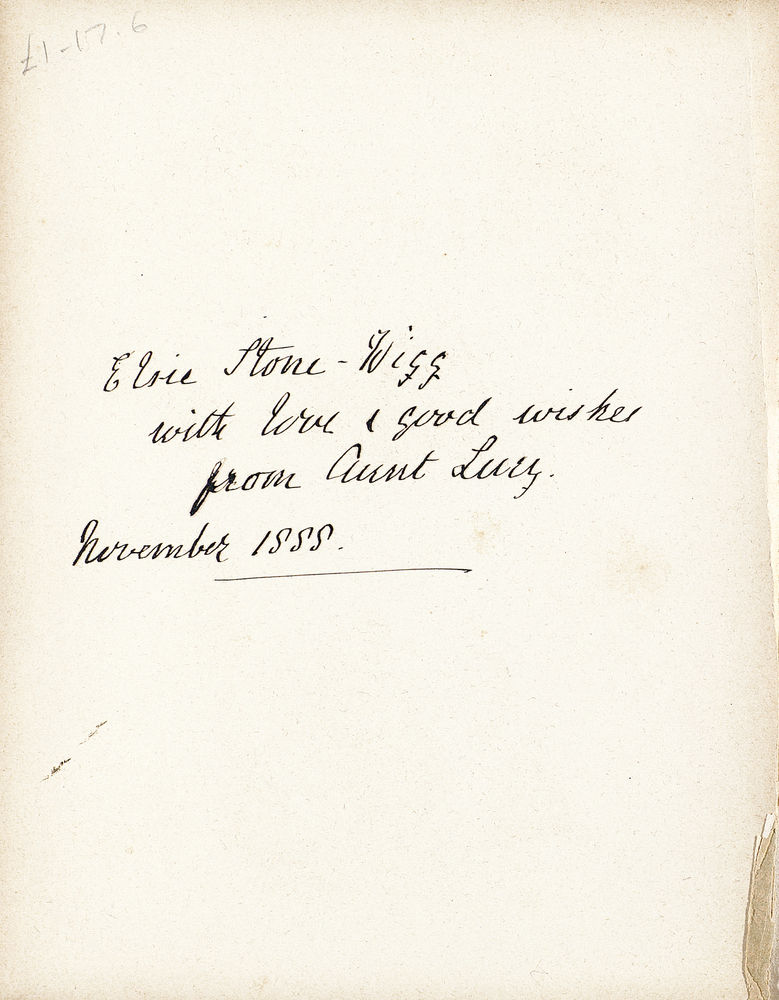 £1-17.6
Elsie Stone-Wigg
with love & good wishes
from Aunt Lucy.
November 1888.